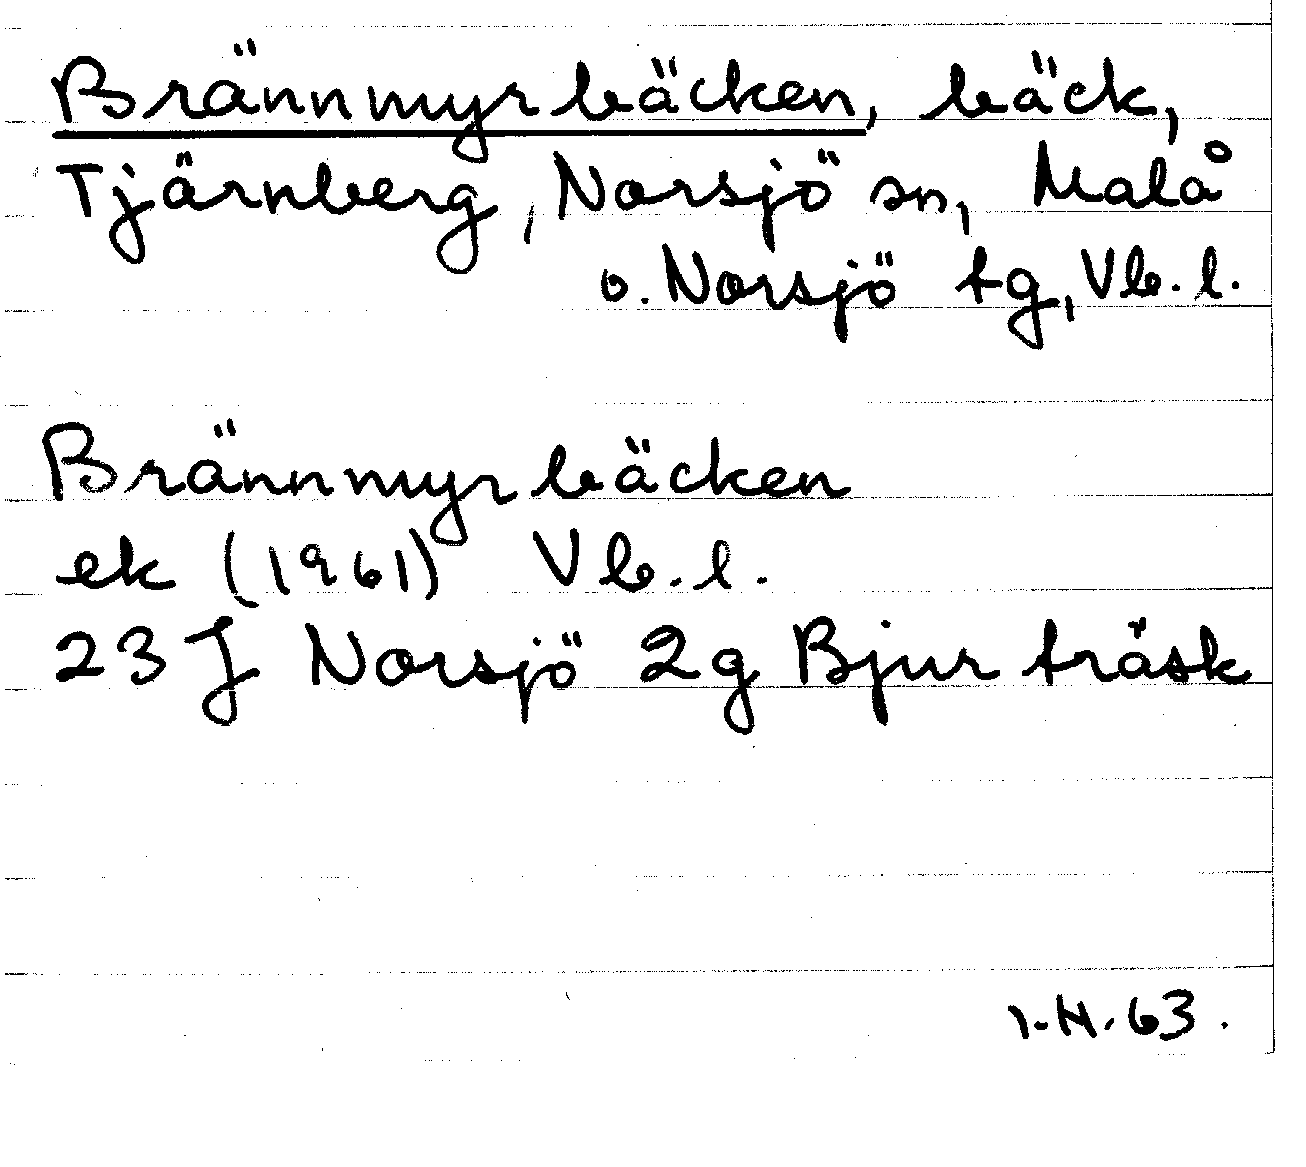 Brännmyrbäcken, bäck,
Tjärnberg, Norsjö sn, Malå
o. Norsjö tg, Vb. l.
Brännmyrbäcken
ek (1961) Vb. l.
23 J Norsjö 2g Bjurträsk
I.H. 63.